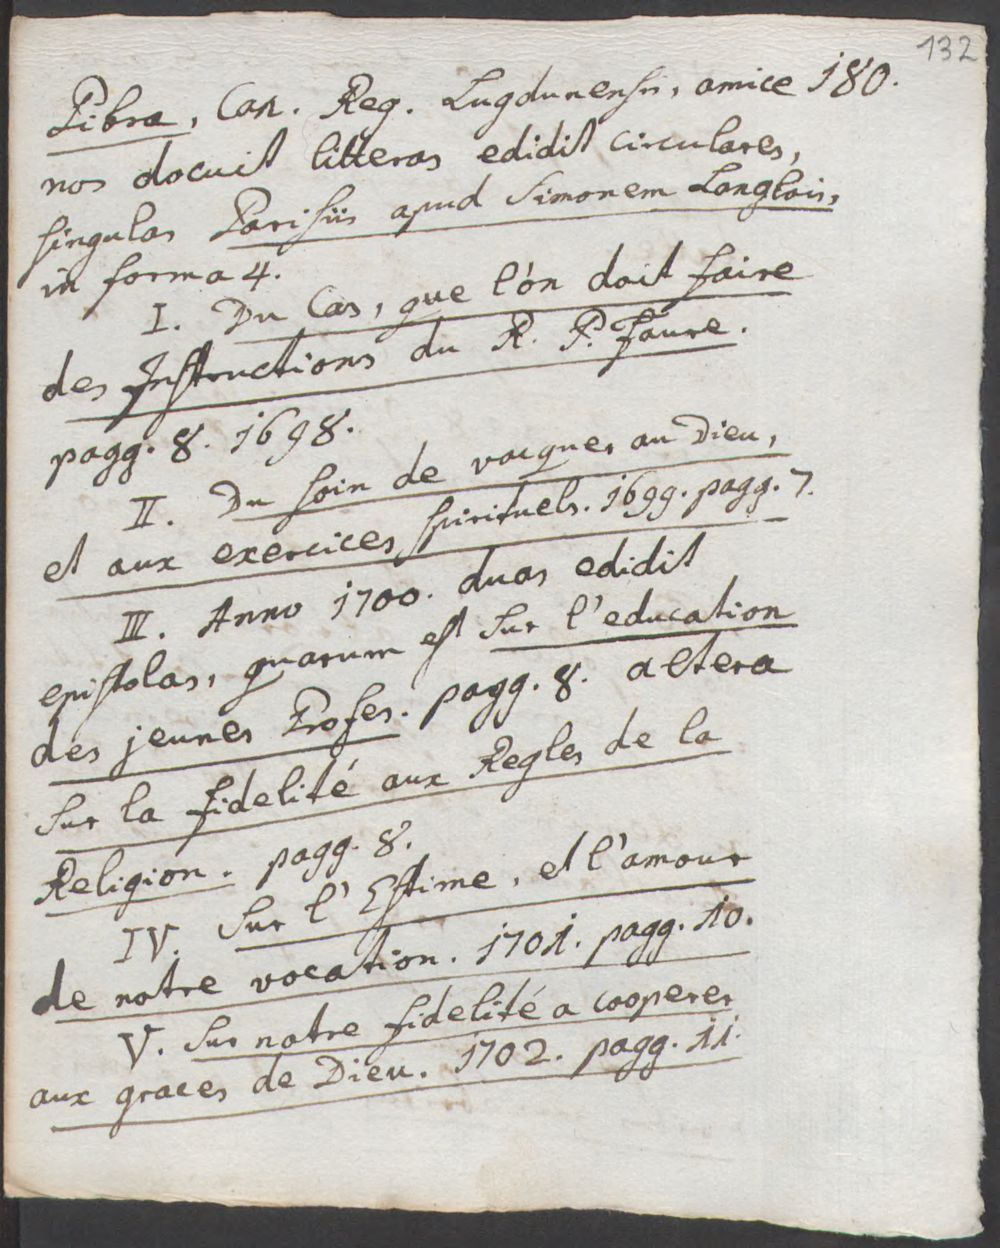 132
Libra, Can. Reg. Lugdunensis, amice 180.
nos docuit litteras edidit circulares,
singulas Parisiis apud Simonem Langlois,
in forma 4.
I. Du Cas, que l'on doit faire
des Instructions du R. P. Faure.
pagg. 8. 1698.
II. Du soin de vacquer au Dieu,
et aux exercices spirituels. 1699. pagg. 7.
III. Anno 1700. duas edidit
epistolas, quarum est Sur l'education
des jeunes Profes. pagg. 8. altera
Sur la fidelité aux Regles de la
Religion. pagg. 8.
IV. Sur l'Estime, et l'amour
de notre vocation. 1701. pagg. 10.
V. Sur notre fidelité a cooperer
aux graces de Dieu. 1702. pagg. 11.